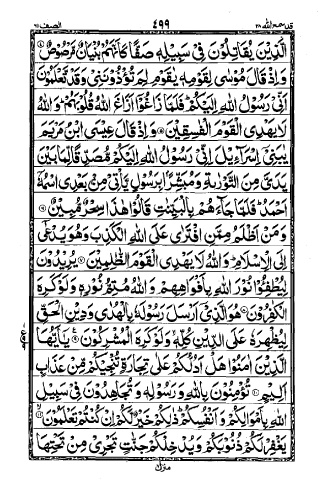 قد سمع الله ٢٨ ٤٩٩ الصف ٦١
الَّذِيْنَ يُقَاتِلُوْنَ فِيْ سَبِيْلِهٖ صَفًّا كَاَنَّهُمْ بُنْيَانٌ مَّرْصُوْصٌ ۝٤
وَاِذْ قَالَ مُوْسٰى لِقَوْمِهٖ يٰقَوْمِ لِمَ تُؤْذُوْنَنِيْ وَقَدْ تَّعْلَمُوْنَ
اَنِّيْ رَسُوْلُ اللهِ اِلَيْكُمْ ؕ فَلَمَّا زَاغُوْۤا اَزَاغَ اللهُ قُلُوْبَهُمْ ؕ وَاللهُ
لَا يَهْدِى الْقَوْمَ الْفٰسِقِيْنَ ۝٥ وَاِذْ قَالَ عِيْسَى ابْنُ مَرْيَمَ
يٰبَنِيْۤ اِسْرَآءِيْلَ اِنِّيْ رَسُوْلُ اللهِ اِلَيْكُمْ مُّصَدِّقًا لِّمَا بَيْنَ
يَدَيَّ مِنَ التَّوْرٰىةِ وَمُبَشِّرًۢا بِرَسُوْلٍ يَّاْتِيْ مِنْۢ بَعْدِى اسْمُهٗۤ
اَحْمَدُ ؕ فَلَمَّا جَآءَهُمْ بِالْبَيِّنٰتِ قَالُوْا هٰذَا سِحْرٌ مُّبِيْنٌ ۝٦
وَمَنْ اَظْلَمُ مِمَّنِ افْتَرٰى عَلَى اللهِ الْكَذِبَ وَهُوَ يُدْعٰۤى
اِلَى الْاِسْلَامِ ؕ وَاللهُ لَا يَهْدِى الْقَوْمَ الظّٰلِمِيْنَ ۝٧ يُرِيْدُوْنَ
لِيُطْفِـُٔوْا نُوْرَ اللهِ بِاَفْوَاهِهِمْ وَاللهُ مُتِمُّ نُوْرِهٖ وَلَوْ كَرِهَ
الْكٰفِرُوْنَ ۝٨ هُوَ الَّذِيْۤ اَرْسَلَ رَسُوْلَهٗ بِالْهُدٰى وَدِيْنِ الْحَقِّ
لِيُظْهِرَهٗ عَلَى الدِّيْنِ كُلِّهٖ وَلَوْ كَرِهَ الْمُشْرِكُوْنَ ۝٩ يٰۤاَيُّهَا
الَّذِيْنَ اٰمَنُوْا هَلْ اَدُلُّكُمْ عَلٰى تِجَارَةٍ تُنْجِيْكُمْ مِّنْ عَذَابٍ
اَلِيْمٍ ۝١٠ تُؤْمِنُوْنَ بِاللهِ وَرَسُوْلِهٖ وَتُجَاهِدُوْنَ فِيْ سَبِيْلِ
اللهِ بِاَمْوَالِكُمْ وَاَنْفُسِكُمْ ؕ ذٰلِكُمْ خَيْرٌ لَّكُمْ اِنْ كُنْتُمْ تَعْلَمُوْنَ ۝١١
يَغْفِرْ لَكُمْ ذُنُوْبَكُمْ وَيُدْخِلْكُمْ جَنّٰتٍ تَجْرِيْ مِنْ تَحْتِهَا
منزل